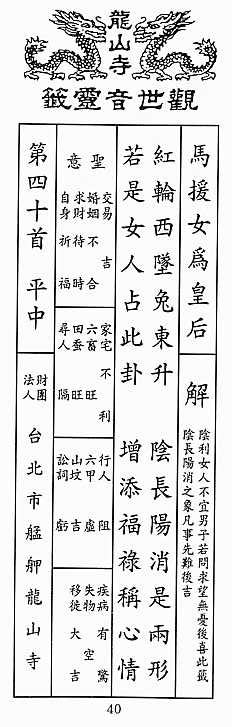 龍山寺
觀世音靈籤
馬援女爲皇后
解
陰利女人不宜男子若問求望無憂後喜此籤
陰長陽消之象凡事先難後吉
紅輪西墜兔東升 陰長陽消是兩形
若是女人占此卦 增添福祿稱心情
聖意
交易 吉
婚姻 不合
求財 待時
自身 祈福
家宅 不利
六畜 旺
田蠶 旺
尋人 隔
行人 阻
六甲 虛
山墳 吉
訟詞 虧
疾病 有驚
失物 空
移徙 大吉
第四十首 平中
財團法人 台北市艋舺龍山寺
40